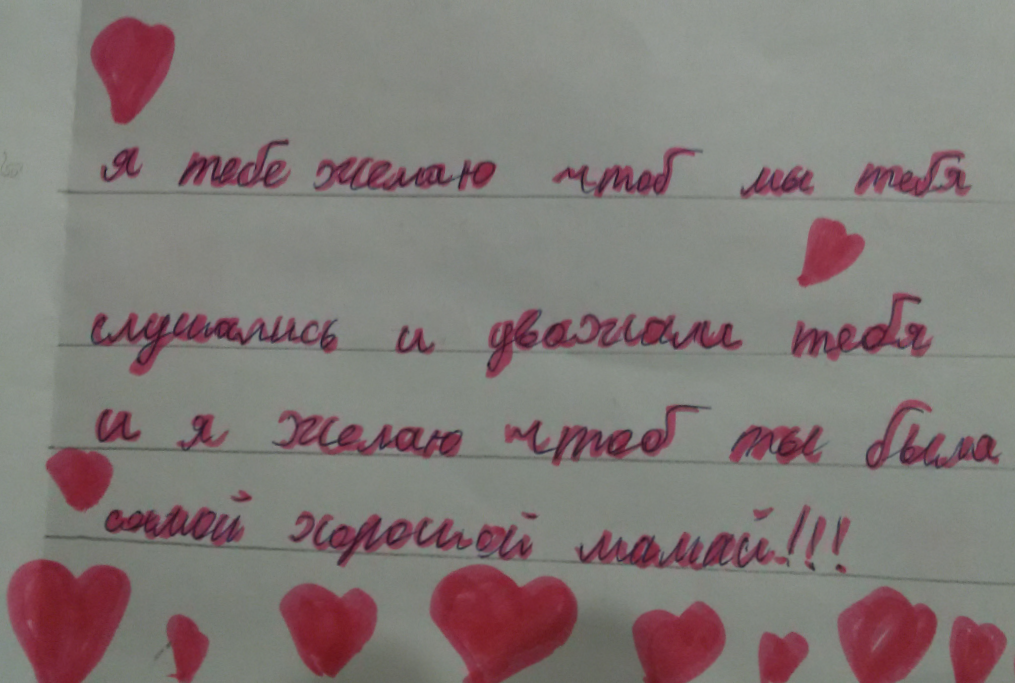 я тебе желаю чтоб мы тебя
слушались и уважали тебя
и я желаю чтоб ты была
самой хорошой мамай!!!